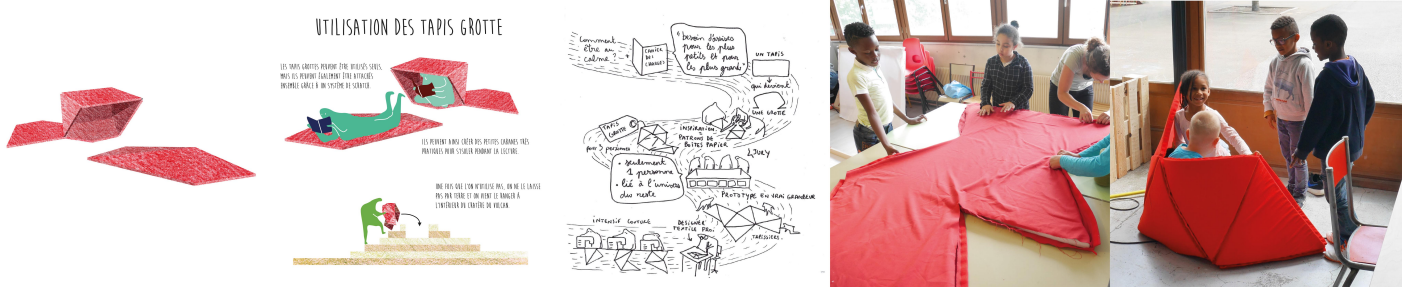 UTILISATION DES TAPIS GROTTE
LES TAPIS GROTTES PEUVENT ÊTRE UTILISÉS SEULS,
MAIS ILS PEUVENT ÉGALEMENT ÊTRE ATTACHÉS
ENSEMBLE GRÂCE À UN SYSTÈME DE SCRATCH.
ILS PEUVENT AINSI CRÉER DES PETITES CABANES TRÈS
PRATIQUES POUR S'ISOLER PENDANT LA LECTURE.
UNE FOIS QUE L'ON N'UTILISE PAS, ON NE LE LAISSE
PAS PAR TERRE ET ON VIENT LE RANGER À
L'INTÉRIEUR DU CRATÈRE DU VOLCAN.
Comment
être au
calme ?
CAHIER
DES
CHARGES
"besoin d'assises
pour les plus
petits et pour
les plus grands"
UN TAPIS
qui devient
UNE GROTTE
TAPIS
GROTTE
pour 3 personnes
INSPIRATION:
PATRONS DE
BOÎTES PAPIER
JURY
• seulement
1 personne
• lié à l'univers
du reste
PROTOTYPE EN VRAI GRANDEUR
TAPISSIERS
INTENSIF COUTURE
DESIGNER
TEXTILE PRO.